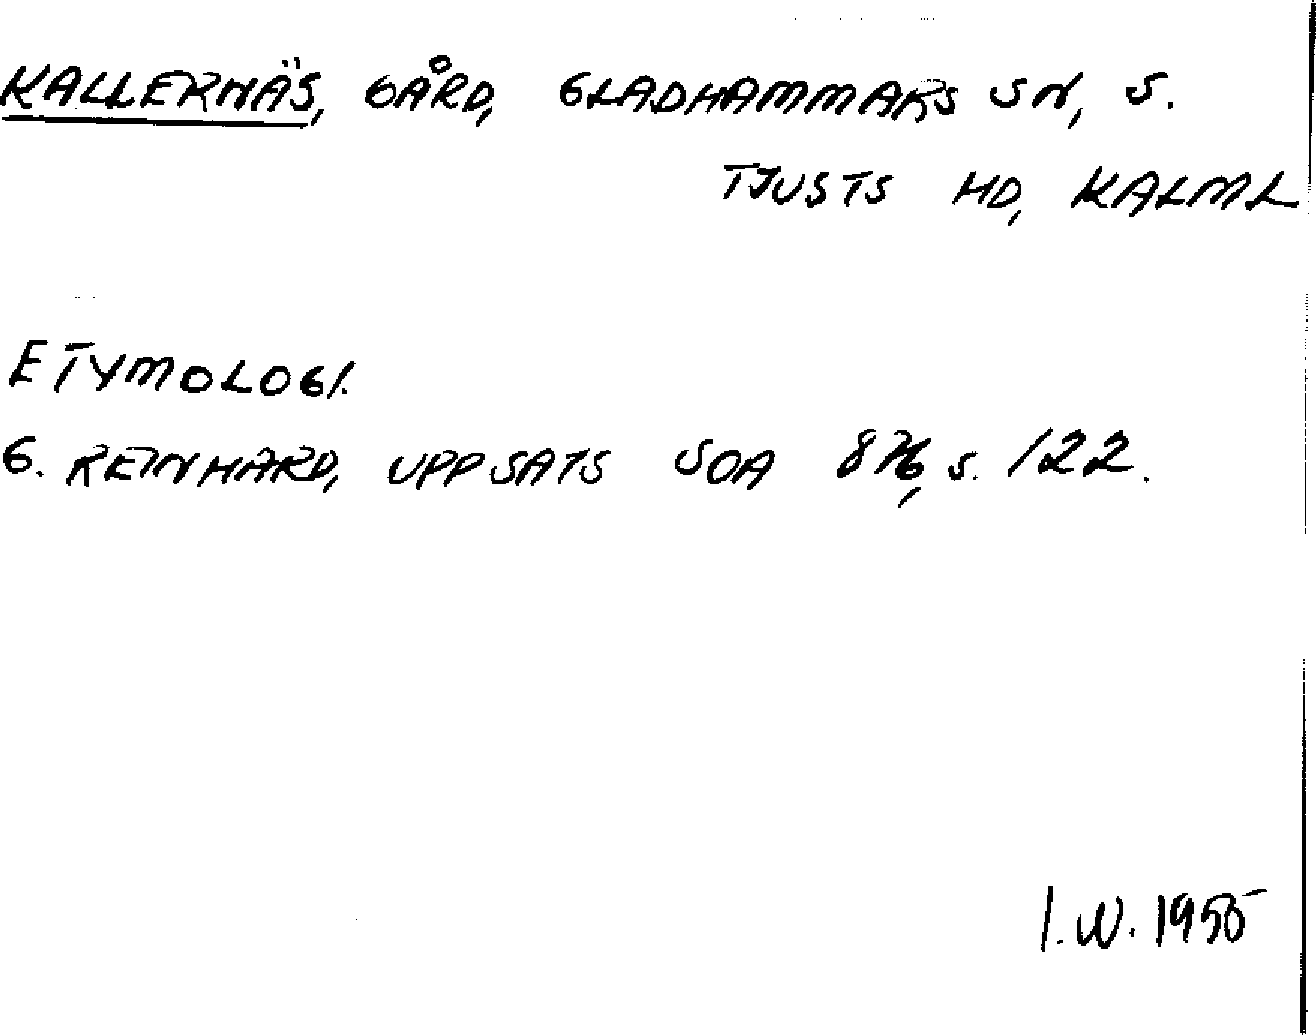 KALLERNÄS, GÅRD, GLADHAMMARS SN, S.
TJUSTS HD, KALML
ETYMOLOGI.
G. REINHARD, UPPSATS SOA 876, s. 122.
I.W. 1955